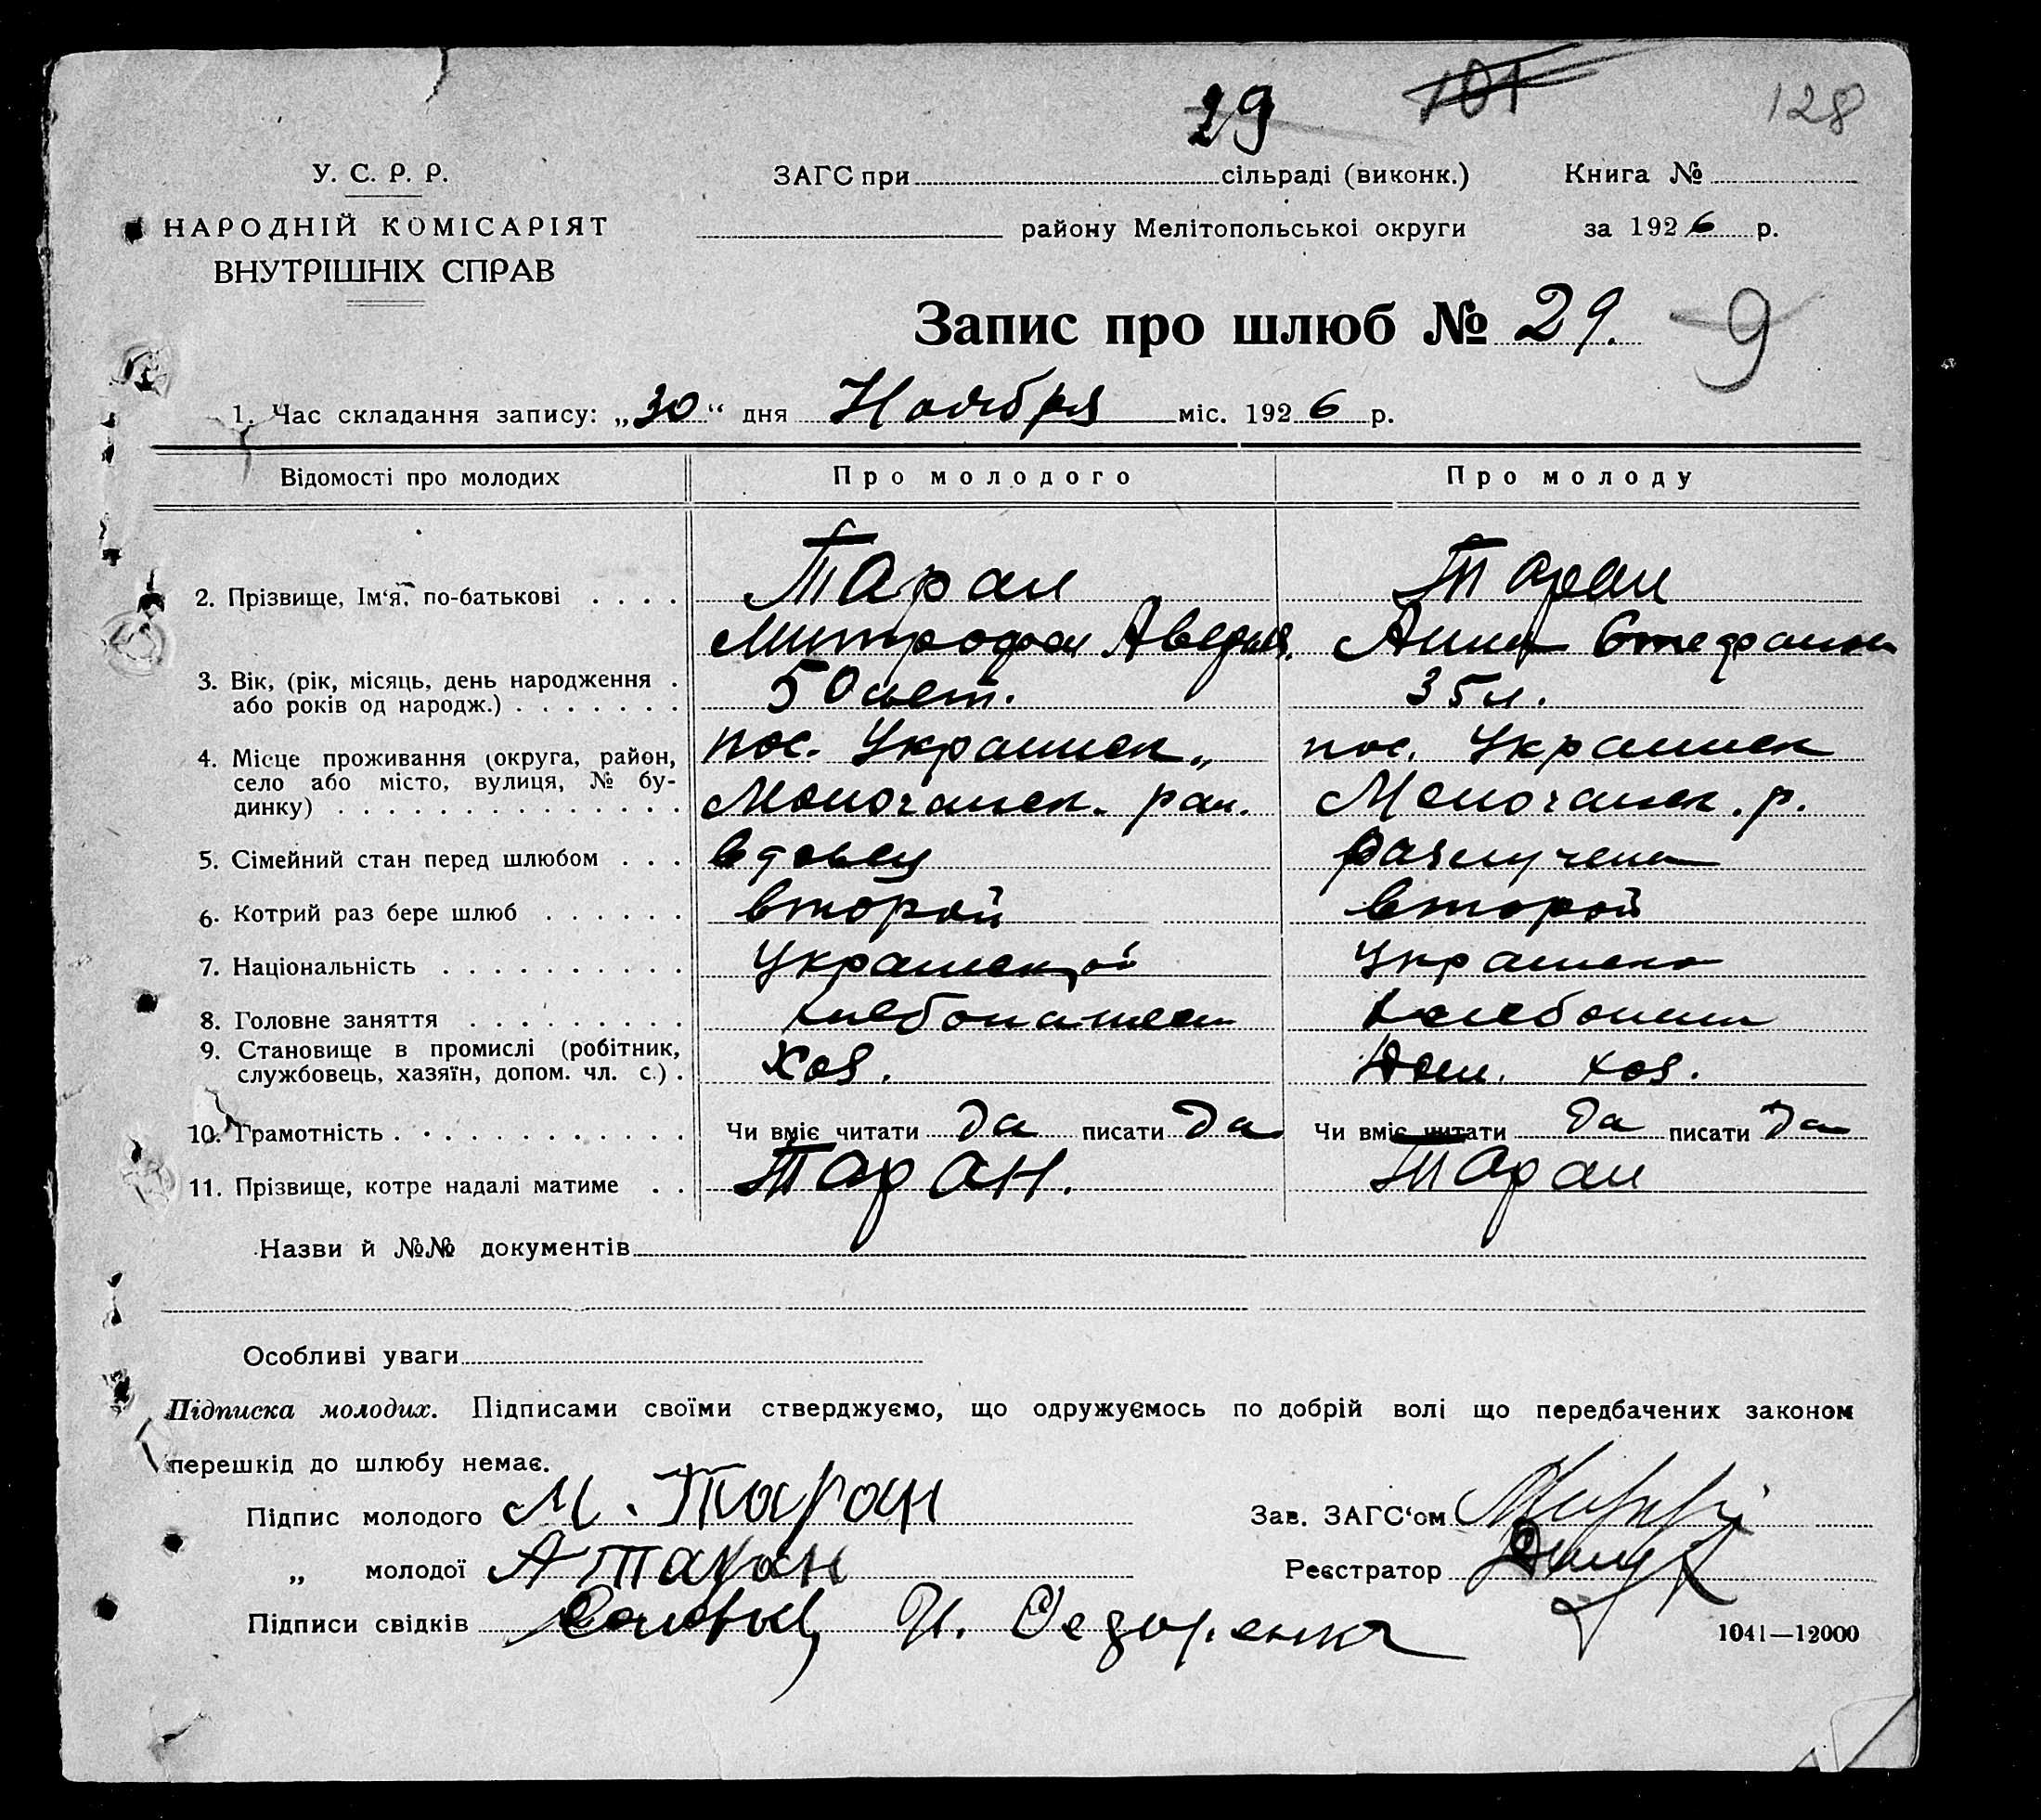 29 101 128
У. С. Р. Р.
НАРОДНІЙ КОМІСАРІЯТ
ВНУТРІШНІХ СПРАВ
ЗАГС при сільраді (виконк.) Книга №
району Мелітопольської округи за 1926 р.
Запис про шлюб № 29. 9
1. Час складання запису: „30“ дня Ноября міс. 1926 р.
Відомості про молодих Про молодого Про молоду
2. Прізвище, Ім‘я, по-батькові Таран Таран
Митрофан Анна
3. Вік, (рік, місяць, день народження . 50 лет. 35 л.
або років од народж.)
4. Місце проживання (округа, район, пос. Украинск. пос. Украинск
село або місто, вулиця, № бу-
динку) Молочанск. Молочанск. р.
5. Сімейний стан перед шлюбом вдовец разлучена
6. Котрий раз бере шлюб второй второй
7. Національність
8. Головне заняття
9. Становище в промислі (робітник,
службовець, хазяїн, допом. чл. с.) . Хоз. Дом. хоз.
10. Грамотність Чи вміє читати да писати да Чи вміє читати да писати да
11. Прізвище, котре надалі матиме Таран. Таран
Назви й №№ документів
Особливі уваги
Підписка молодих. Підписами своїми стверджуємо, що одружуємось по добрій волі що передбачених законом
перешкід до шлюбу немає.
Підпис молодого М. Таран Зав. ЗАГС‘ом
„ молодої А Таран Реєстратор
Підписи свідків И. Федоренко
1041—12000